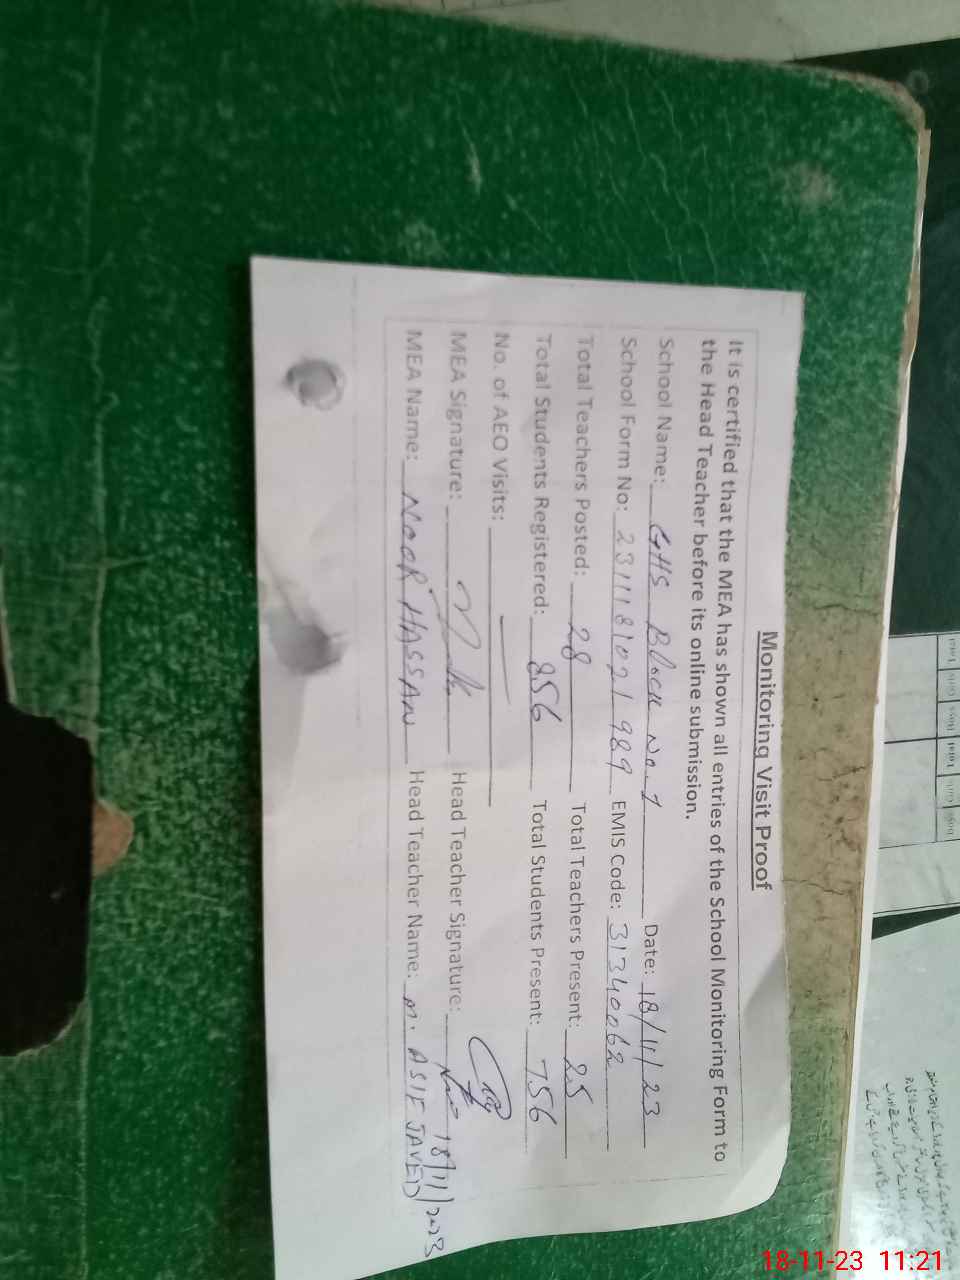 Monitoring Visit Proof
It is certified that the MEA has shown all entries of the School Monitoring Form to
the Head Teacher before its online submission.
School Name: GHS Block No. 1 Date: 18/11/23
School Form No: 2311181021989 EMIS Code: 31340062
Total Teachers Posted: 28 Total Teachers Present: 25
Total Students Registered: 856 Total Students Present: 756
No. of AEO Visits: —
MEA Signature: Head Teacher Signature: 18/11/2023
MEA Name: NOOR HASSAN Head Teacher Name: M. ASIF JAVED
18-11-23 11:21